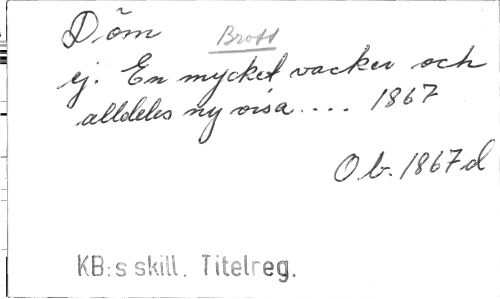 Döm Brott
ej. En mycket vacker och
alldeles ny visa.... 1867
Ob. 1867 d
KB:s skill. Titelreg.